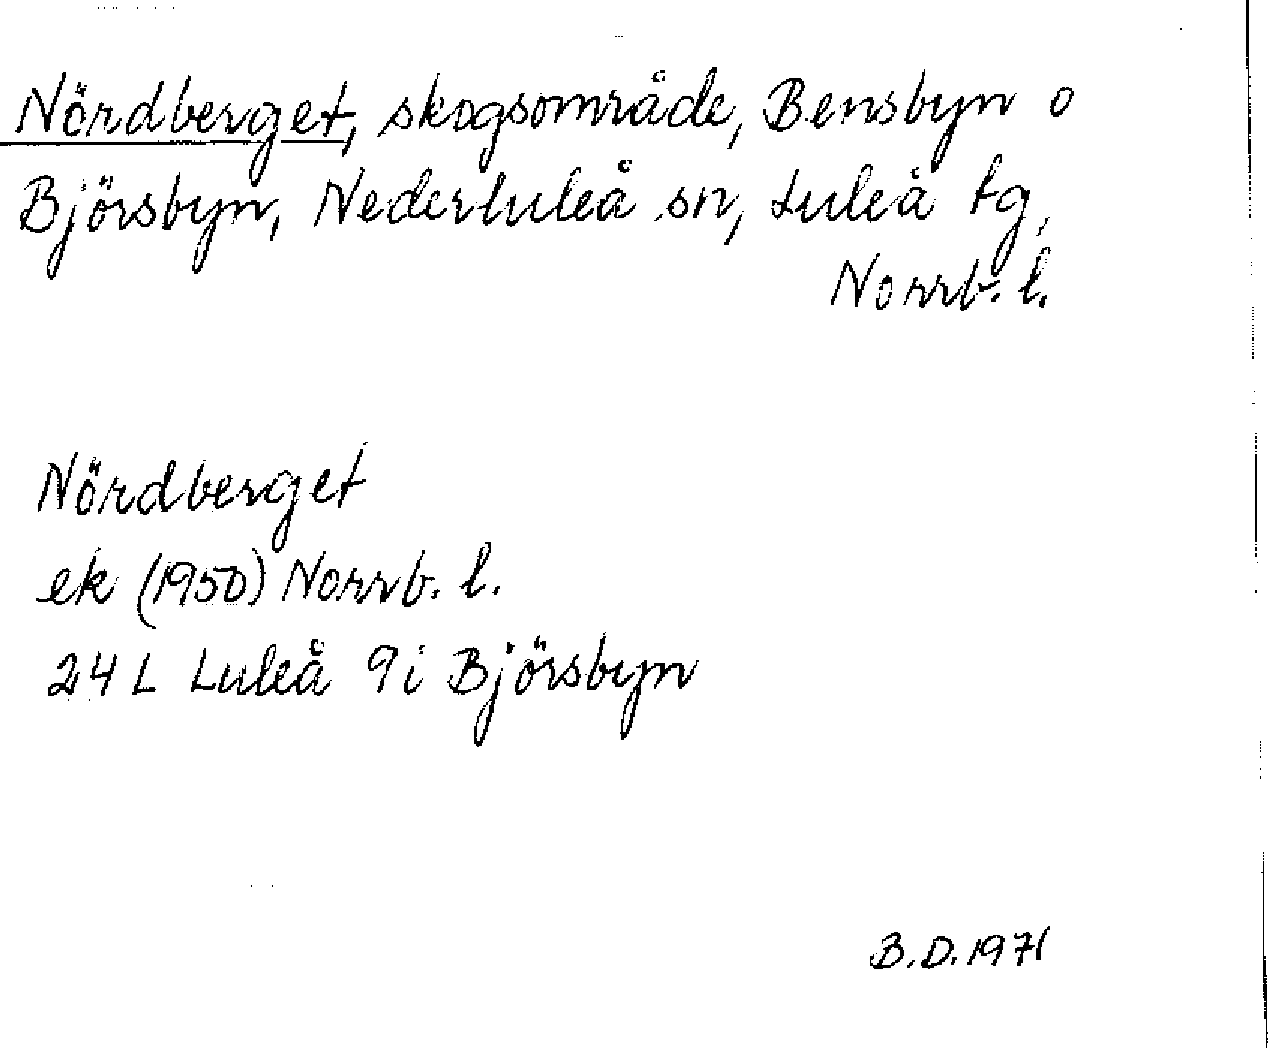 Nördberget, skogsområde, Bensbyn o
Björsbyn, Nederluleå sn, Luleå tg,
Norrb. l.
Nördberget
ek (1950) Norrb. l.
24 L Luleå 9i Björsbyn
B.D. 1971